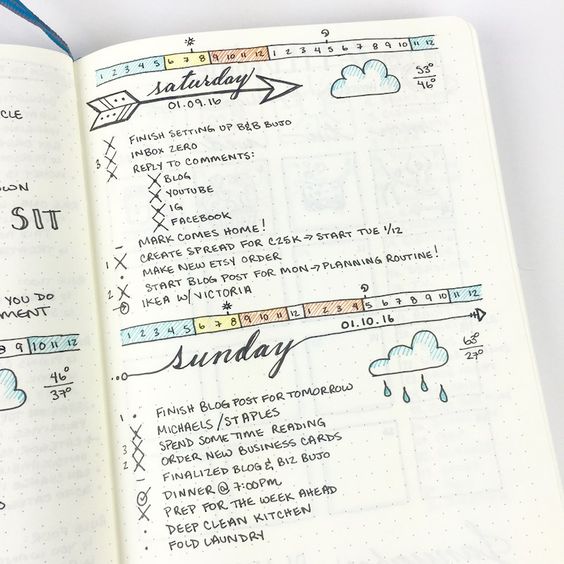 CLE
OWN
SIT
YOU DO
MENT
9 10 11 12
46°
37°
1 2 3 4 5 6 7 8 9 10 11 12 1 2 3 4 5 6 7 8 9 10 11 12
saturday
01.09.16
53°
46°
X FINISH SETTING UP B&B BUJO
X INBOX ZERO
3 X REPLY TO COMMENTS:
X BLOG
X YOUTUBE
X IG
X FACEBOOK
– MARK COMES HOME!
1 X CREATE SPREAD FOR C25K → START TUE 1/12
• MAKE NEW ETSY ORDER
2 X START BLOG POST FOR MON → PLANNING ROUTINE!
IKEA W/ VICTORIA
1 2 3 4 5 6 7 8 9 10 11 12 1 2 3 4 5 6 7 8 9 10 11 12
sunday
01.10.16
63°
27°
1 • FINISH BLOG POST FOR TOMORROW
X MICHAELS/STAPLES
3 X SPEND SOME TIME READING
2 X ORDER NEW BUSINESS CARDS
– FINALIZED BLOG & BIZ BUJO
DINNER @ 7:00PM
X PREP FOR THE WEEK AHEAD
• DEEP CLEAN KITCHEN
• FOLD LAUNDRY